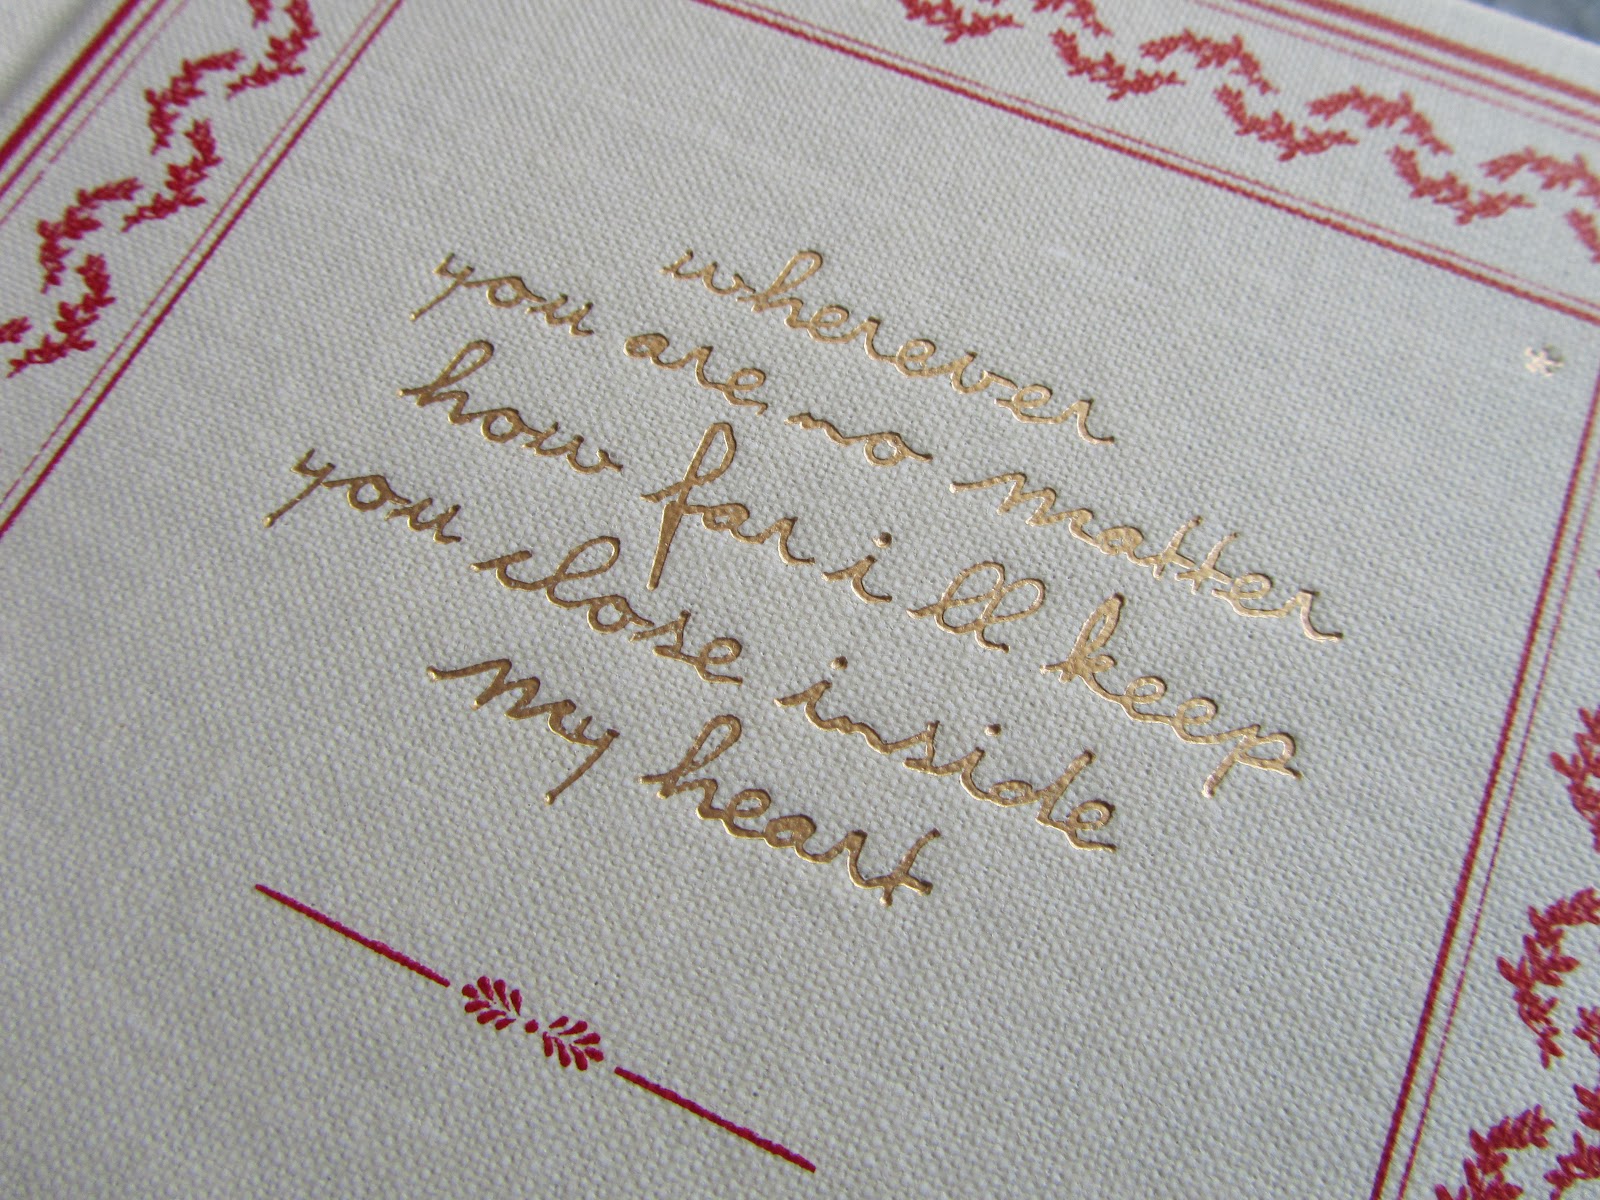 wherever
you are no matter
how far i ll keep
you close inside
my heart